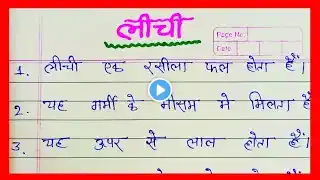 लीची
Page No
Date
1. लीची एक रसीला फल होता हैं।
2. यह गर्मी के मौसम मे मिलता है
3. यह ऊपर से लाल होता हैं।